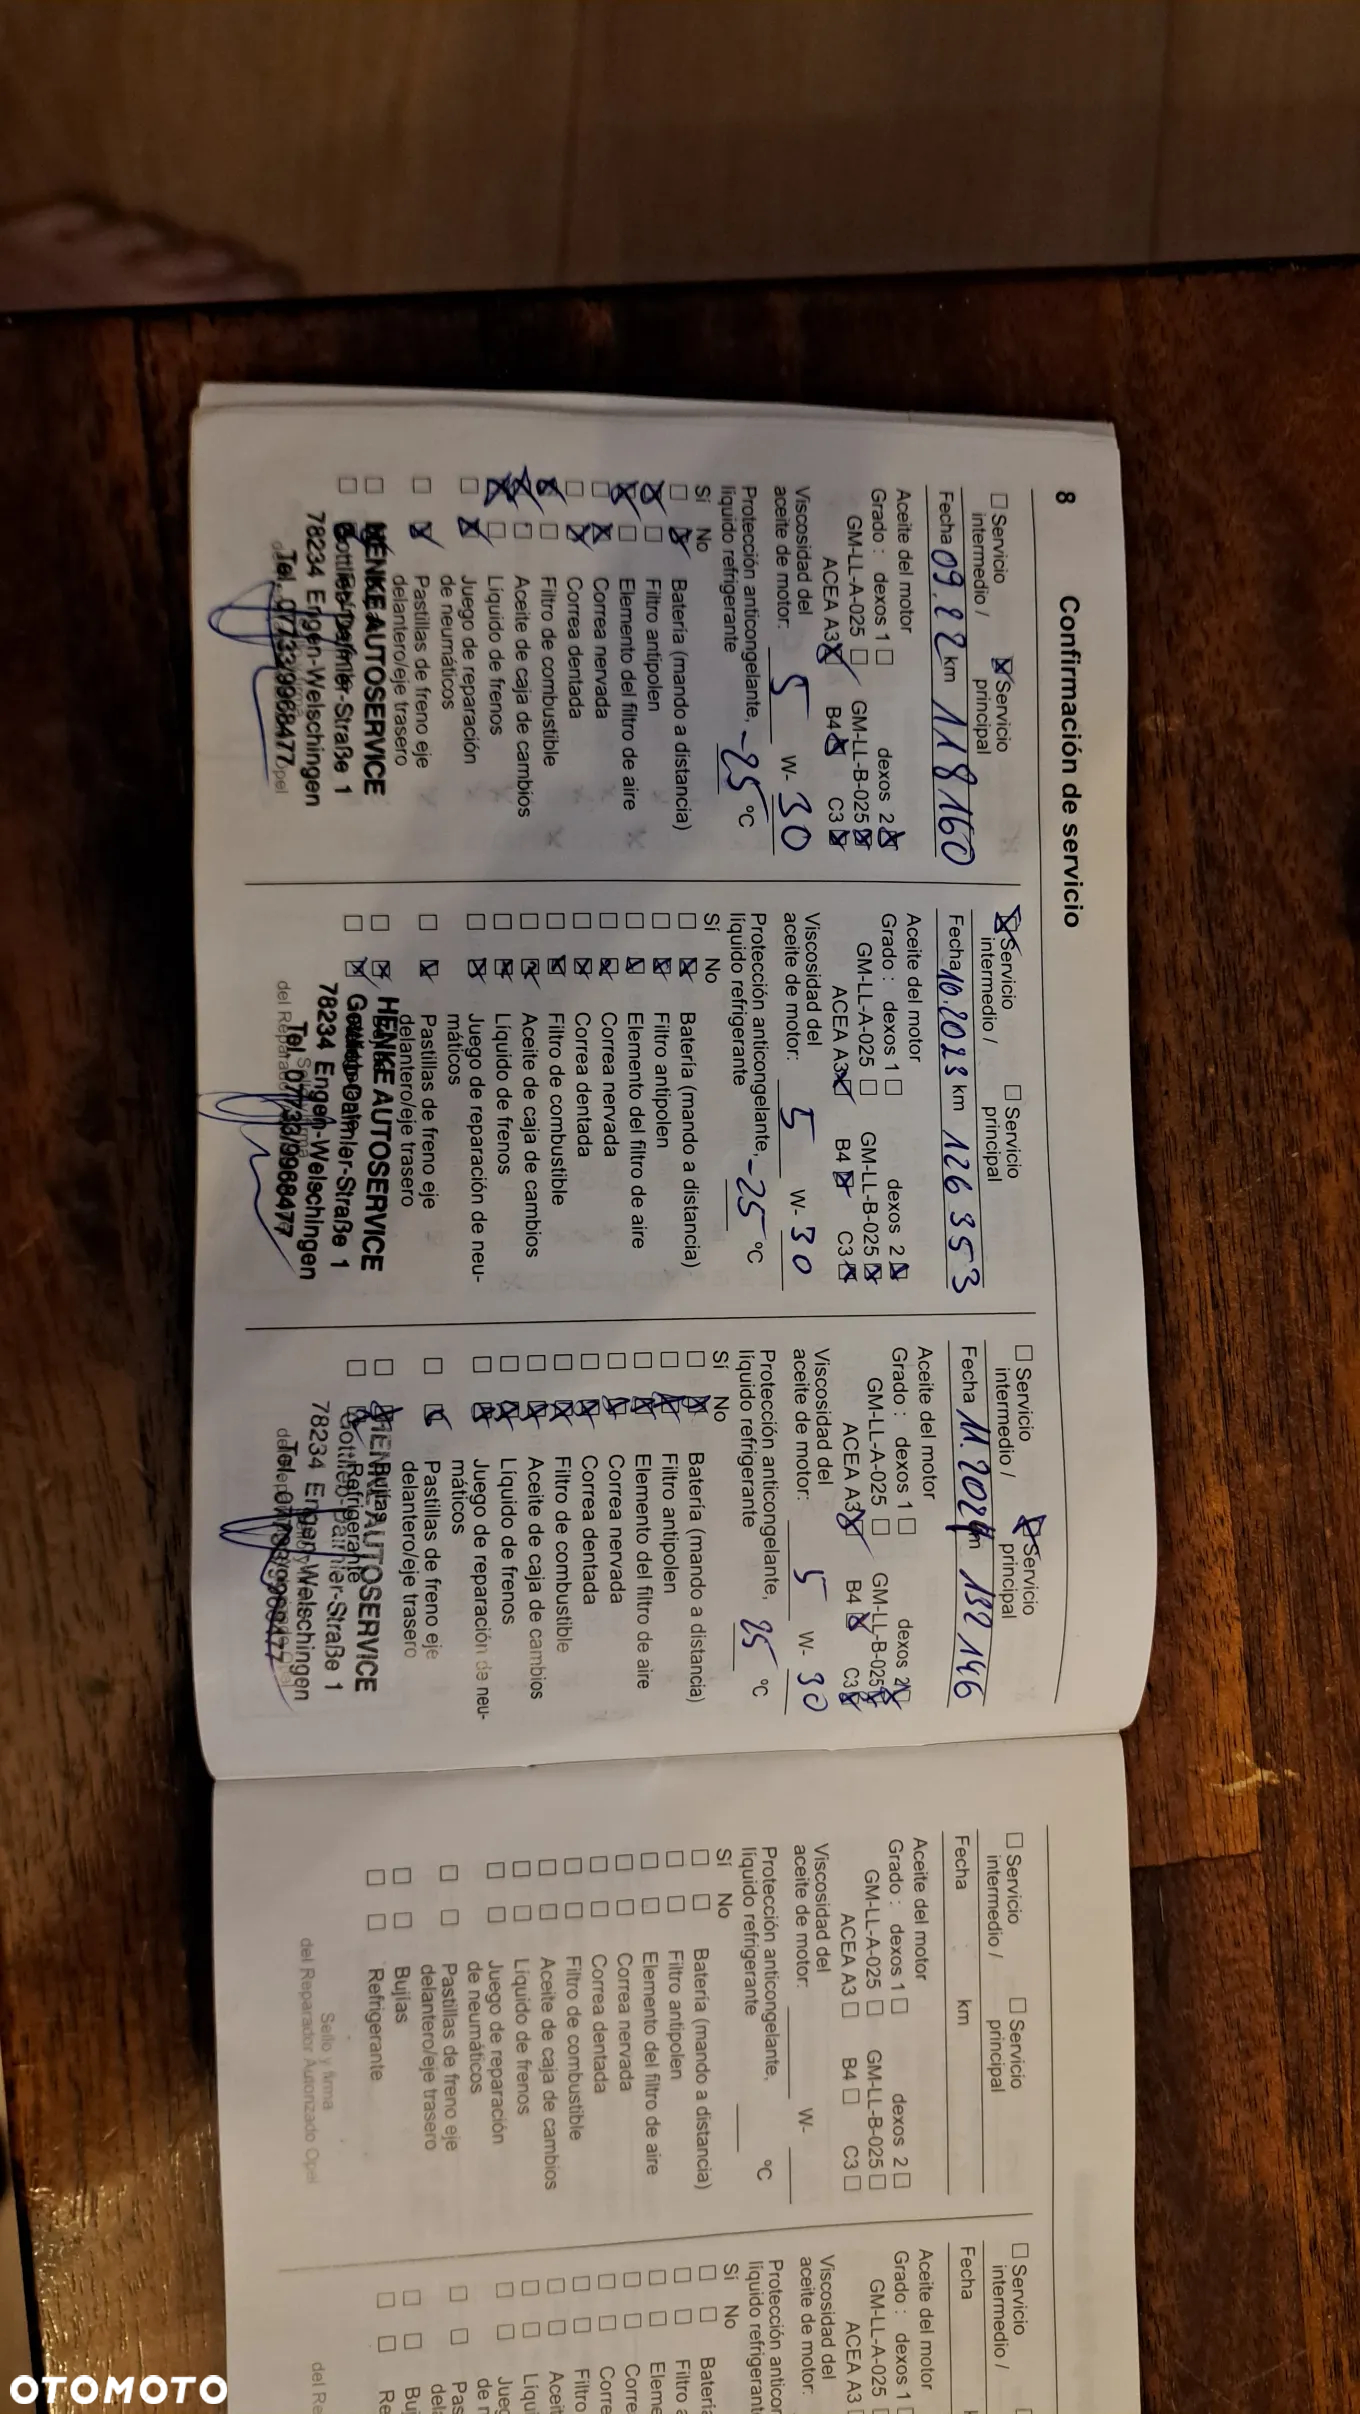 8 Confirmación de servicio
Servicio intermedio /
Servicio principal
Fecha 09.22 km 118160
Aceite del motor
Grado : dexos 1 dexos 2
GM-LL-A-025 GM-LL-B-025
ACEA A3 B4 C3
Viscosidad del
aceite de motor: 5 W- 30
Protección anticongelante,
líquido refrigerante -25 °C
Sí No
Batería (mando a distancia)
Filtro antipolen
Elemento del filtro de aire
Correa nervada
Correa dentada
Filtro de combustible
Aceite de caja de cambios
Líquido de frenos
Juego de reparación
de neumáticos
Pastillas de freno eje
delantero/eje trasero
HENKE AUTOSERVICE
Gottlieb-Daimler-Straße 1
78234 Engen-Welschingen
Tel. 07733/9968477
Opel
Servicio intermedio /
Servicio principal
Fecha 10.2023 km 126353
Aceite del motor
Grado : dexos 1 dexos 2
GM-LL-A-025 GM-LL-B-025
ACEA A3 B4 C3
Viscosidad del
aceite de motor: 5 W- 30
Protección anticongelante,
líquido refrigerante -25 °C
Sí No
Batería (mando a distancia)
Filtro antipolen
Elemento del filtro de aire
Correa nervada
Correa dentada
Filtro de combustible
Aceite de caja de cambios
Líquido de frenos
Juego de reparación de neu-
máticos
Pastillas de freno eje
delantero/eje trasero
HENKE AUTOSERVICE
Gottlieb-Daimler-Straße 1
78234 Engen-Welschingen
Tel. 07733/9968477
Servicio intermedio /
Servicio principal
Fecha 11.2024 km 132146
Aceite del motor
Grado : dexos 1 dexos 2
GM-LL-A-025 GM-LL-B-025
ACEA A3 B4 C3
Viscosidad del
aceite de motor: 5 W- 30
Protección anticongelante,
líquido refrigerante 25 °C
Sí No
Batería (mando a distancia)
Filtro antipolen
Elemento del filtro de aire
Correa nervada
Correa dentada
Filtro de combustible
Aceite de caja de cambios
Líquido de frenos
Juego de reparación de neu-
máticos
Pastillas de freno eje
delantero/eje trasero
Bujías
Refrigerante
HENKE AUTOSERVICE
Gottlieb-Daimler-Straße 1
78234 Engen-Welschingen
Tel. 07733/9968477
Servicio intermedio /
Servicio principal
Fecha km
Aceite del motor
Grado : dexos 1 dexos 2
GM-LL-A-025 GM-LL-B-025
ACEA A3 B4 C3
Viscosidad del
aceite de motor: W-
Protección anticongelante,
líquido refrigerante °C
Sí No
Batería (mando a distancia)
Filtro antipolen
Elemento del filtro de aire
Correa nervada
Correa dentada
Filtro de combustible
Aceite de caja de cambios
Líquido de frenos
Juego de reparación
de neumáticos
Pastillas de freno eje
delantero/eje trasero
Bujías
Refrigerante
Sello y firma
del Reparador Autorizado Opel
Servicio
intermedio /
Fecha
Aceite del motor
Grado : dexos 1
GM-LL-A-025
ACEA A3
Viscosidad del
aceite de motor:
Protección anticon
líquido refrigerant
Sí No
Batería
Filtro a
Eleme
Corre
Corre
Filtro
Aceit
Líqui
Jueg
de n
Pas
del
Buj
Re
del Re
OTOMOTO